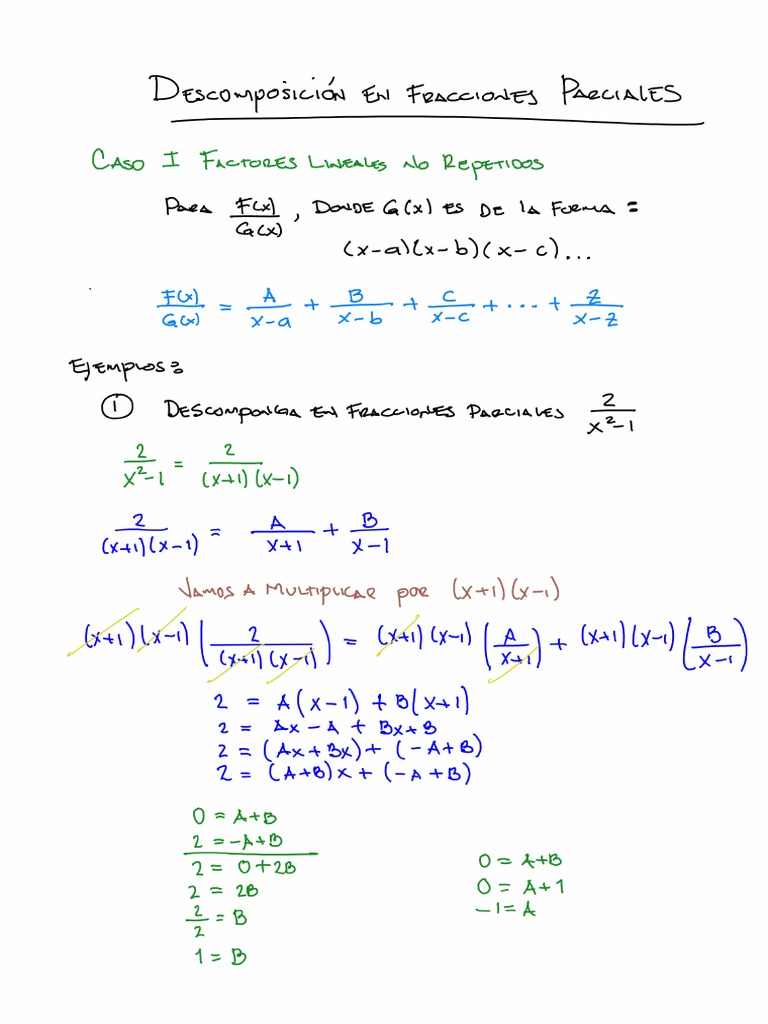 DESCOMPOSICIÓN EN FRACCIONES PARCIALES
CASO I FACTORES LINEALES NO REPETIDOS
PARA F(x)/G(x), DONDE G(x) ES DE LA FORMA:
(x-a)(x-b)(x-c)...
F(x)/G(x) = A/(x-a) + B/(x-b) + C/(x-c) + ... + Z/(x-z)
EJEMPLOS:
① DESCOMPONGA EN FRACCIONES PARCIALES 2/(x²-1)
2/(x²-1) = 2/((x+1)(x-1))
2/((x+1)(x-1)) = A/(x+1) + B/(x-1)
VAMOS A MULTIPLICAR POR (x+1)(x-1)
(x+1)(x-1)(2/((x+1)(x-1))) = (x+1)(x-1)(A/(x+1)) + (x+1)(x-1)(B/(x-1))
2 = A(x-1) + B(x+1)
2 = Ax - A + Bx + B
2 = (Ax + Bx) + (-A + B)
2 = (A+B)x + (-A + B)
0 = A+B
2 = -A+B
2 = 0+2B
2 = 2B
2/2 = B
1 = B
0 = A+B
0 = A+1
-1 = A